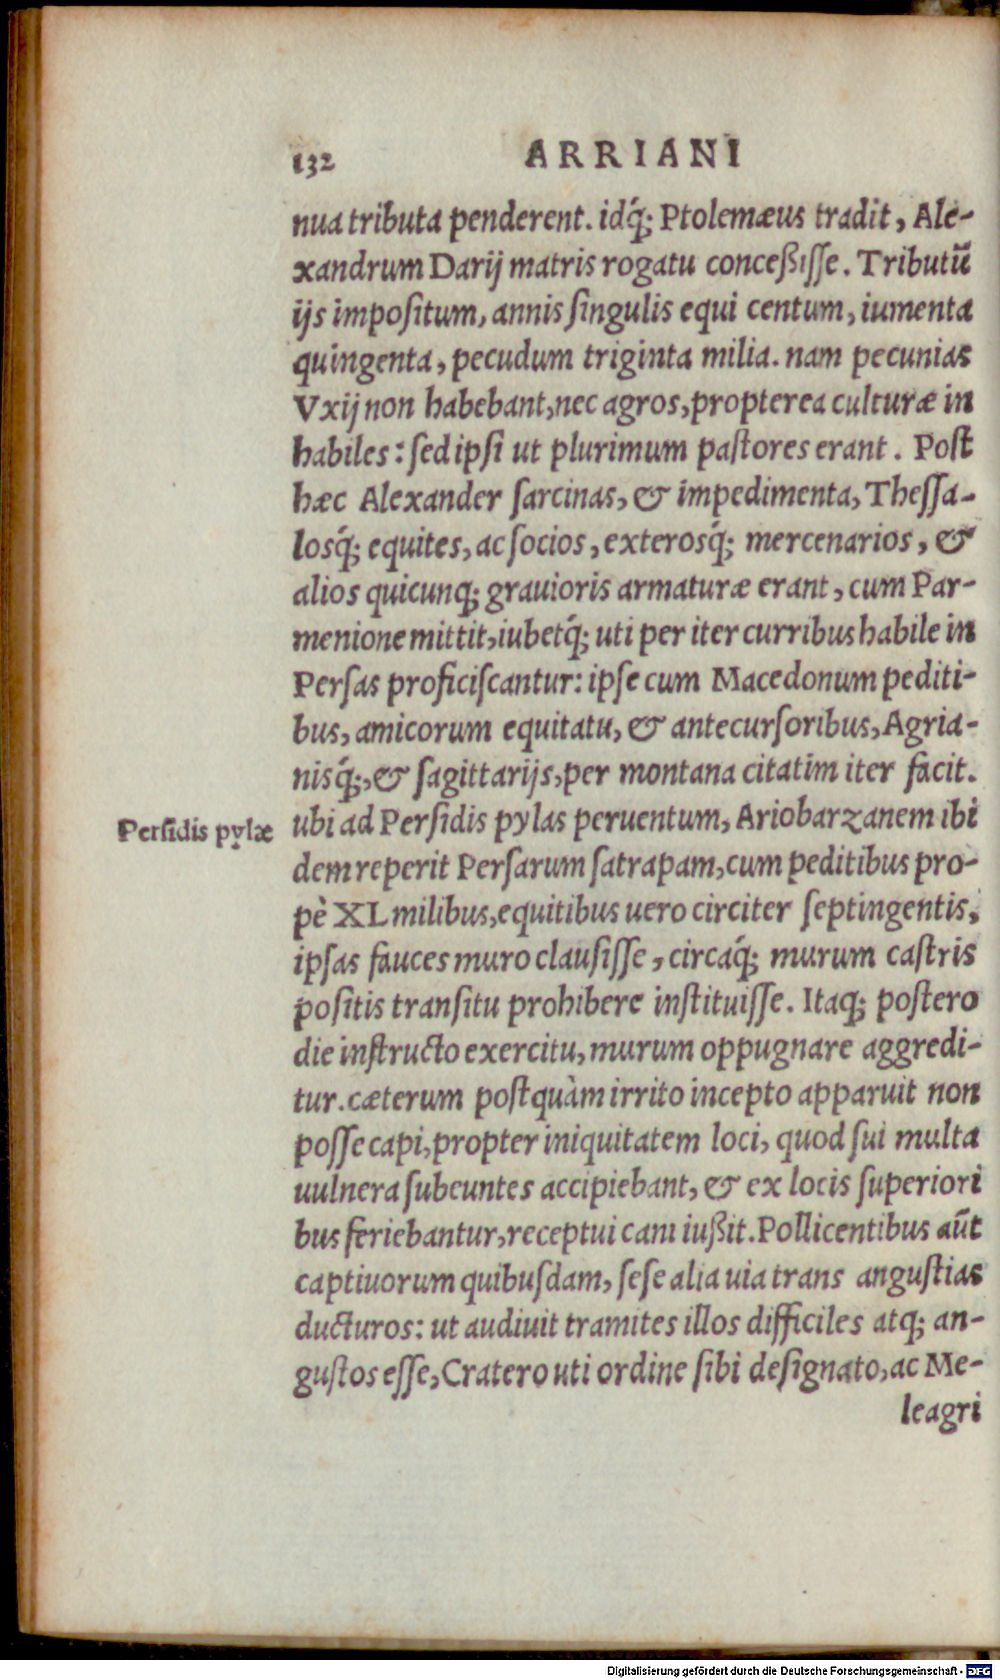 132 ARRIANI
nua tributa penderent. idq́; Ptolemæus tradit, Ale-
xandrum Darij matris rogatu conceßiſſe. Tributū
ijs impoſitum, annis ſingulis equi centum, iumenta
quingenta, pecudum triginta milia. nam pecunias
Vxij non habebant, nec agros, propterea culturæ in
habiles: ſed ipſi ut plurimum paſtores erant. Poſt
hæc Alexander ſarcinas, & impedimenta, Theſſa-
losq́; equites, ac ſocios, exterosq́; mercenarios, &
alios quicunq; grauioris armaturæ erant, cum Par-
menione mittit, iubetq́; uti per iter curribus habile in
Perſas proficiſcantur: ipſe cum Macedonum pediti-
bus, amicorum equitatu, & antecurſoribus, Agria-
nisq́;, & ſagittarijs, per montana citatim iter facit.
Perſidis pylæ
ubi ad Perſidis pylas peruentum, Ariobarzanem ibi
dem reperit Perſarum ſatrapam, cum peditibus pro-
pè XL milibus, equitibus uero circiter ſeptingentis,
ipſas fauces muro clauſiſſe, circaq́; murum caſtris
poſitis tranſitu prohibere inſtituiſſe. Itaq; poſtero
die inſtructo exercitu, murum oppugnare aggredi-
tur. cæterum poſtquàm irrito incepto apparuit non
poſſe capi, propter iniquitatem loci, quod ſui multa
uulnera ſubeuntes accipiebant, & ex locis ſuperiori
bus feriebantur, receptui cani iußit. Pollicentibus aūt
captiuorum quibuſdam, ſeſe alia uia trans anguſtias
ducturos: ut audiuit tramites illos difficiles atq; an-
guſtos eſſe, Cratero uti ordine ſibi deſignato, ac Me-
leagri
Digitalisierung gefördert durch die Deutsche Forschungsgemeinschaft - DFG